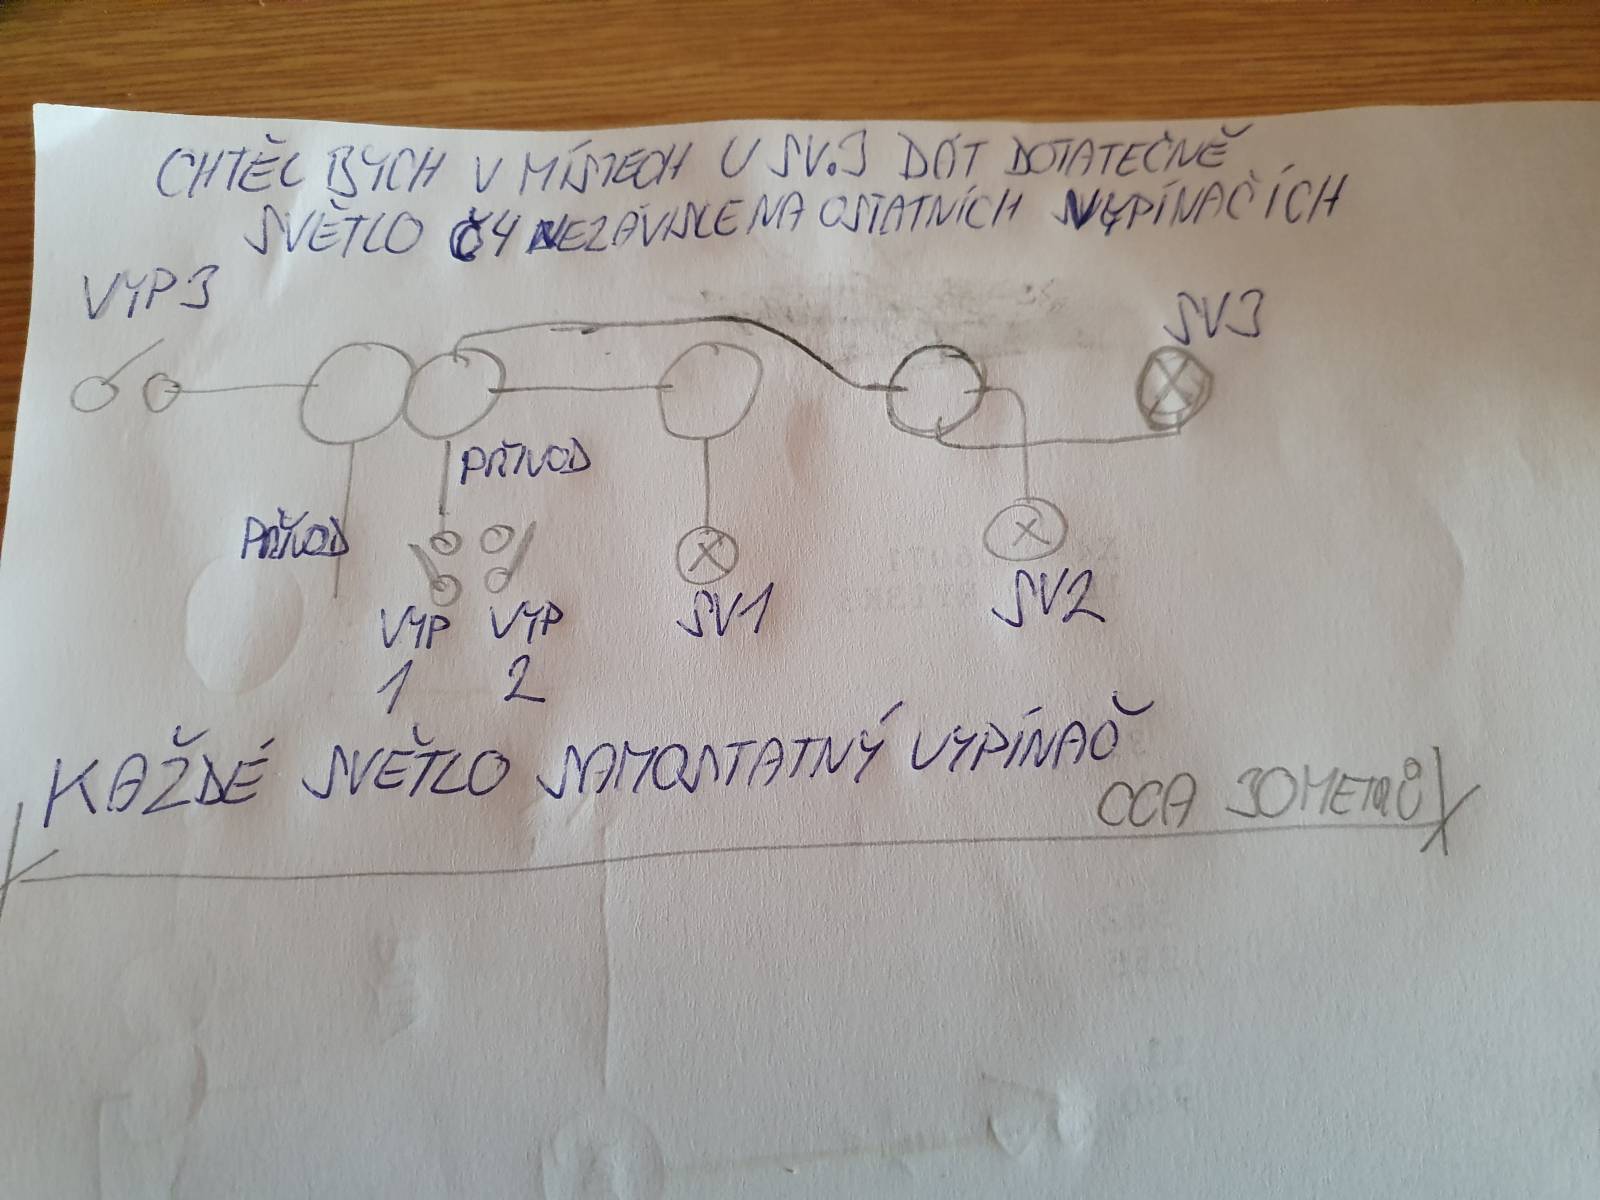 CHTĚL BYCH V MÍSTECH U SV.3 DÁT DOTATEČNĚ
SVĚTLO Č4 NEZÁVISLE NA OSTATNÍCH VYPÍNAČÍCH
VYP3
SV3
PŘÍVOD
PŘÍVOD
VYP 1
VYP 2
SV1
SV2
KAŽDÉ SVĚTLO SAMOSTATNÝ VYPÍNAČ
CCA 30METRŮ